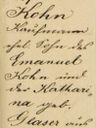 Kohn
Kaufmann
ehel. Sohn des
Emanuel
Kohn und
der Kathari-
na geb.
Glaser aus